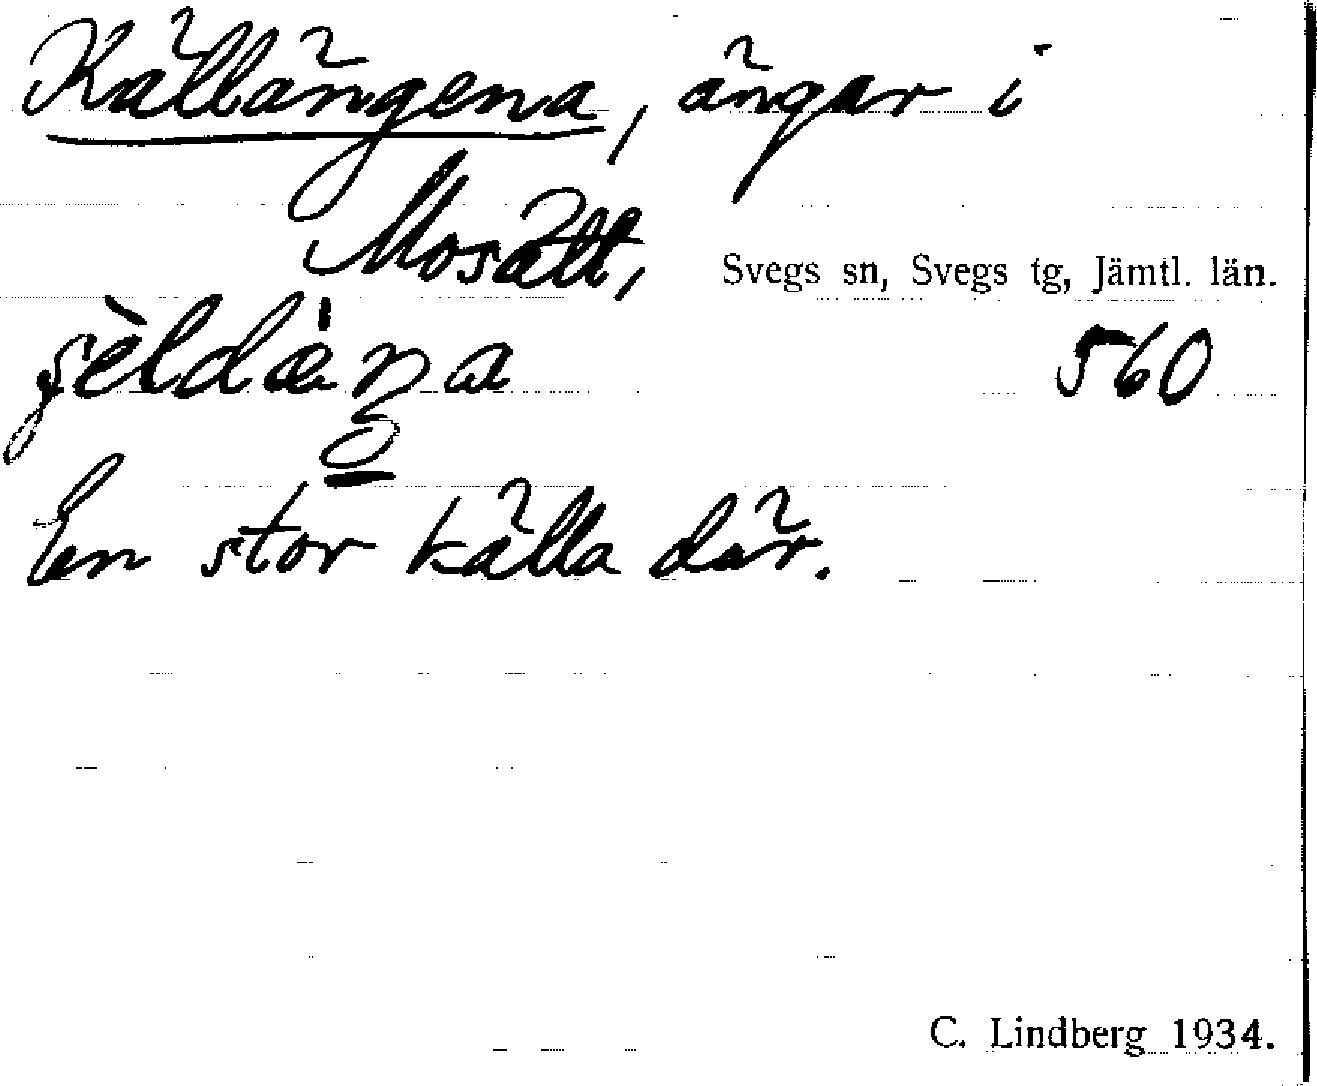 Källängena, ängar i
Mosätt,
Svegs sn, Svegs tg, Jämtl. län.
560
En stor källa där.
C. Lindberg 1934.